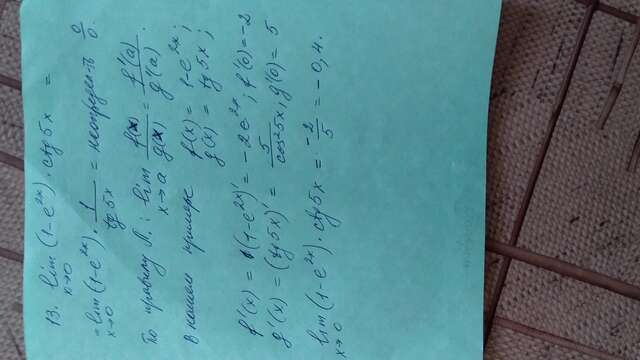 13. lim (1-e^2x) · ctg 5x =
x→0
= lim (1-e^2x) · 1/tg 5x = неопредел-ть 0/0
x→0
По правилу Л.: lim f(x)/g(x) = f'(a)/g'(a).
x→a
В нашем примере f(x) = 1-e^2x;
g(x) = tg 5x;
f'(x) = (1-e^2x)' = -2e^2x; f'(0)=-2
g'(x) = (tg 5x)' = 5/cos²5x, g'(0) = 5
lim (1-e^2x) · ctg 5x = -2/5 = -0,4.
x→0